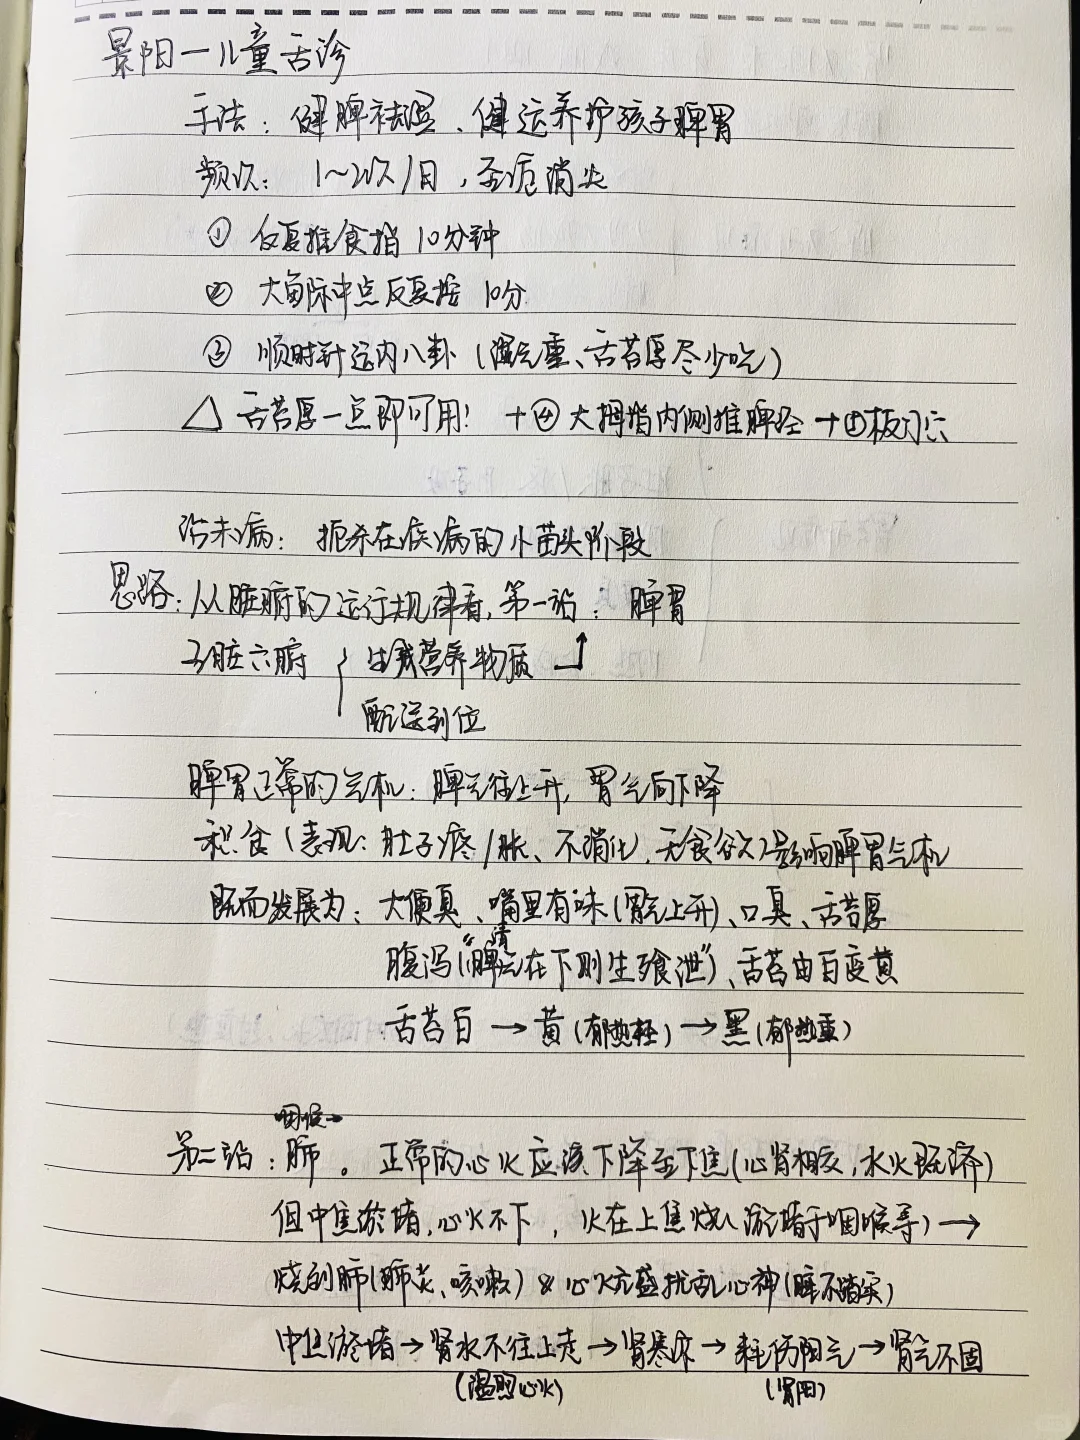 景阳一儿童舌诊
手法：健脾祛湿、健运养护孩子脾胃
频次：1～2次/日，至症消失
① 反复推食指10分钟
② 大鱼际中点反复按10分
③ 顺时针运内八卦（湿气重、舌苔厚尽少吃）
△ 舌苔厚一点即可用！+④大拇指内侧推脾经→⑤板门穴
治未病：扼杀在疾病的小苗头阶段
思路：从脏腑的运行规律看，第一站：脾胃
五脏六腑 { 生成营养物质
配送到位
脾胃正常的气机：脾气往上升，胃气向下降
积食（表现：肚子疼/胀、不消化、无食欲）影响脾胃气机
既而发展为：大便臭、嘴里有味（胃气上升）、口臭、舌苔厚
腹泻（“清气在下则生飧泄”）、舌苔由白变黄
舌苔白→黄（郁热轻）→黑（郁热重）
咽喉→
第二站：肺。正常的心火应该下降至下焦（心肾相交，水火既济）
但中焦淤堵，心火不下，火在上焦烧（淤堵于咽喉等）→
烧到肺（肺炎、咳嗽）& 心火亢盛扰乱心神（睡不踏实）
中焦淤堵→肾水不往上走→肾寒冰→耗伤阳气→肾气不固
（温照心火）（肾阳）